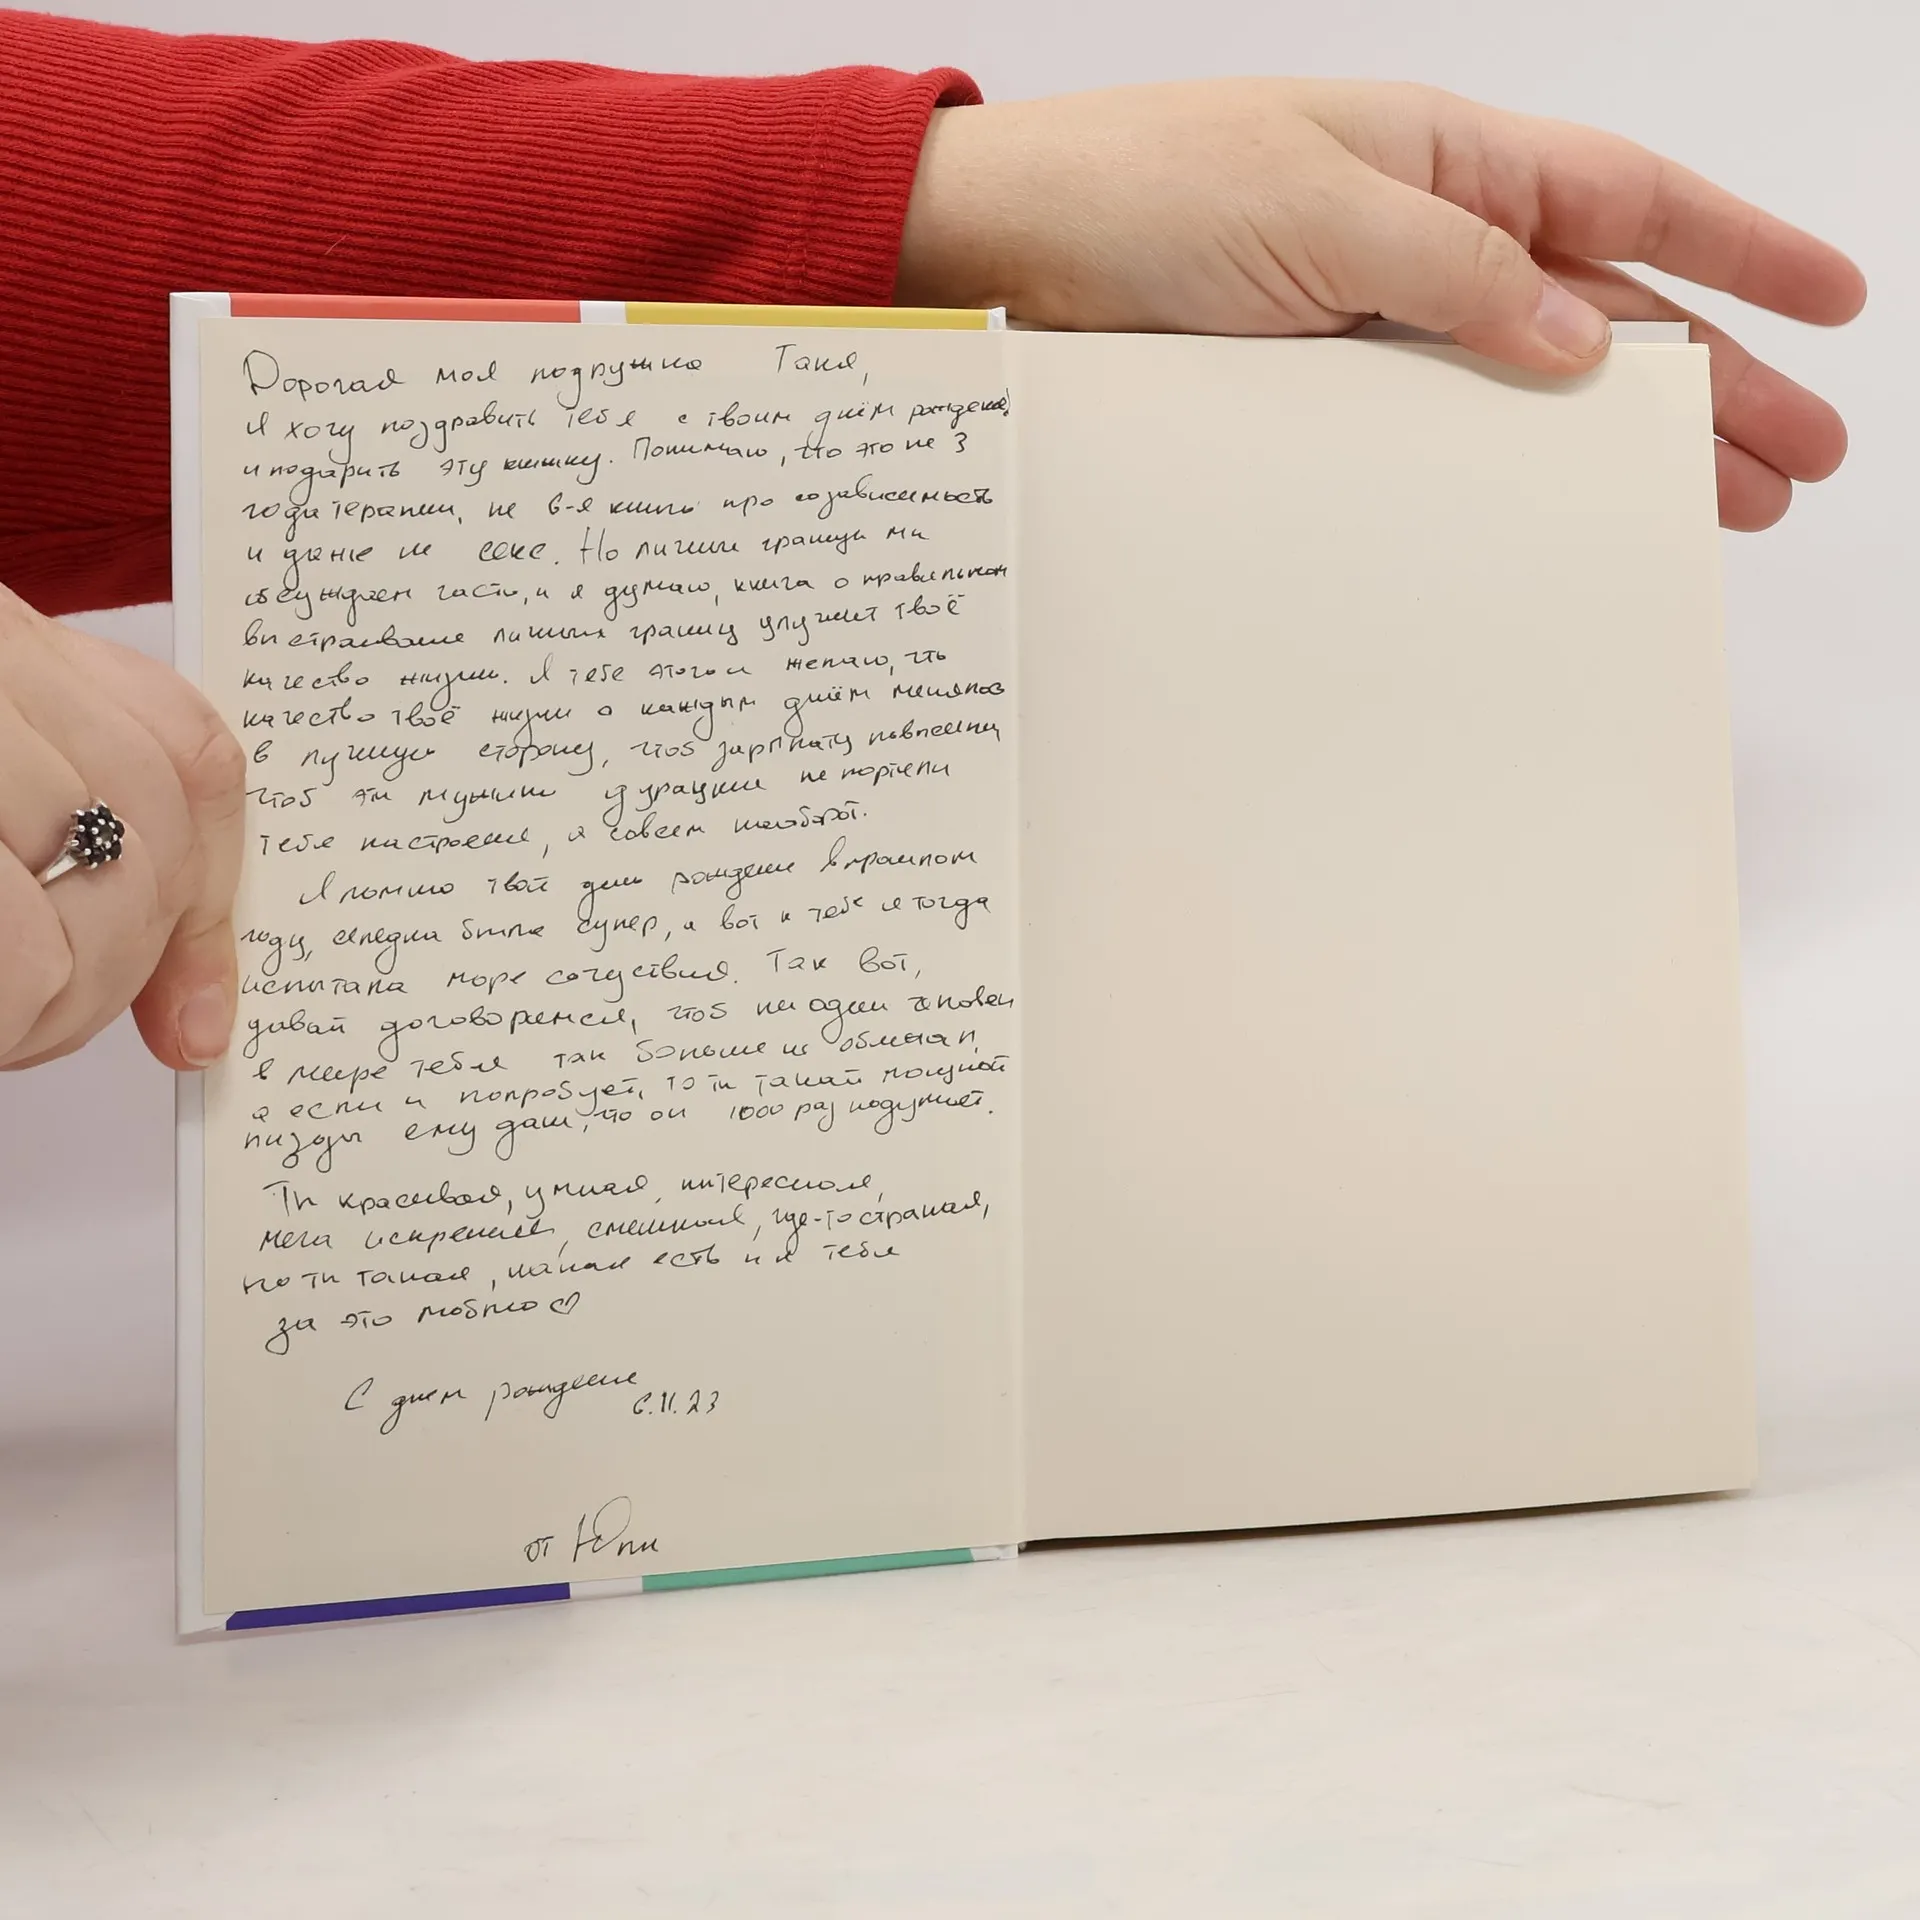 Дорогая моя подружка Таня,
я хочу поздравить тебя с твоим днём рождения
и подарить эту книжку. Понимаю, что это не 3
года терапии, не 6-я книга про созависимость
и даже не секс. Но личные границы мы
обсуждаем часто, и я думаю, книга о правильном
выстраивание личных границ улучшит твоё
качество жизни. Я тебе этого и желаю, чтоб
качество твоё жизни с каждым днём менялось
в лучшую сторону, чтоб зарплату повысили,
чтоб эти мужики дурацкие не портили
тебе настроение, а совсем наоборот.
Я помню твой день рождения в прошлом
году, селедка была супер, а вот к тебе я тогда
испытала море сочуствия. Так вот,
давай договоримся, чтоб ни один человек
в мире тебя так больше не обижал,
а если и попробует, то ты такой мощной
пизды ему дашь, что он 1000 раз подумает.
Ты красивая, умная, интересная,
мега искренняя, смешная, где-то странная,
но ты такая, какая есть и я тебя
за это люблю ♡
С днем рождения
6.11.23
от Юли